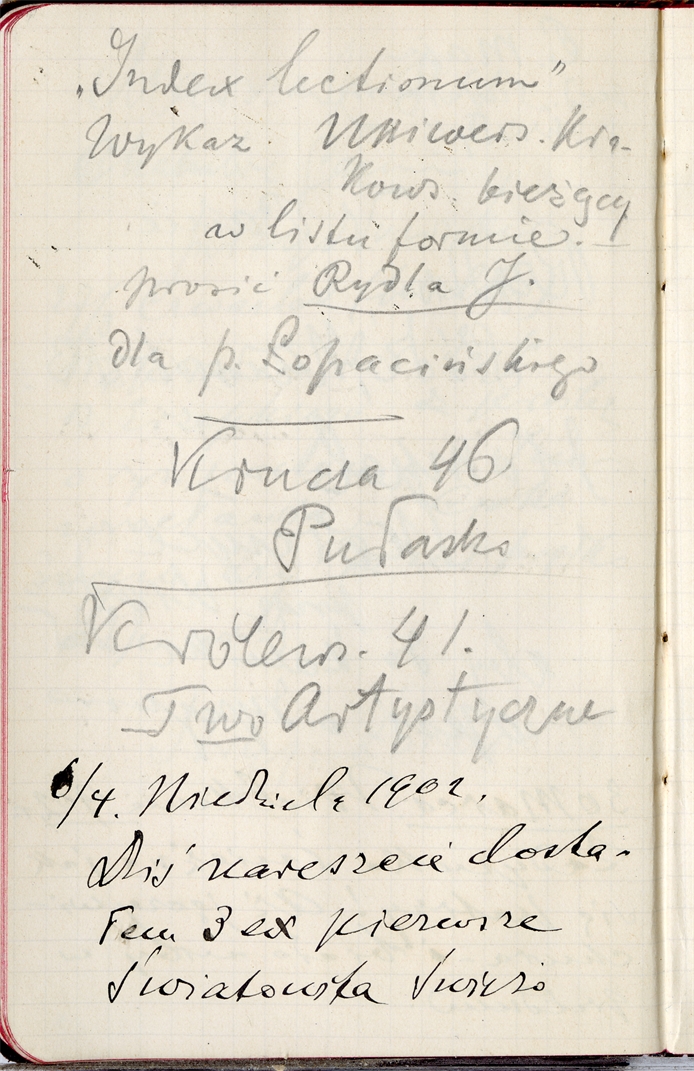 „Index lectionum”
Wykaz Uniwers. Kra-
kows. bieżący
w listu formie.
prosić Rydla J.
dla p. Łopacińskiego
Krucza 46
Pułasko
Królews. 41.
Two Artystyczne
6/4. Niedziela 1902.
Dziś nareszcie dosta-
łem 3 ex pierwsze
Światowita świeżo